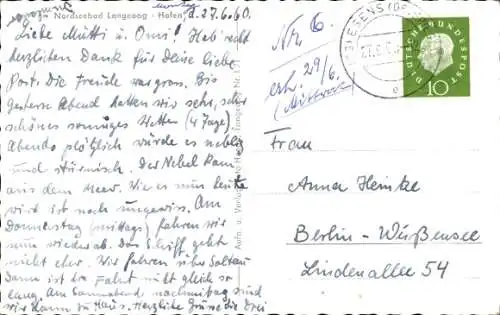 Nordseebad Langeoog - Hafen
d. 27.6.60.
Liebe Mutti u. Omi! Habt recht
herzlichen Dank für Deine liebe
Post. Die Freude war gross. Bis
gestern Abend hatten wir sehr, sehr
schönes sonniges Wetter (4 Tage).
Abends plötzlich wurde es neblig
und stürmisch. Der Nebel kam
aus dem Meer. Wie es nun heute
wird ist noch ungewiss. Am
Donnerstag (mittags) fahren wir
nun wieder ab. Das Schiff geht
nicht eher. Wir fahren über Soltau
dann ist die Fahrt nicht gleich so
lang. Am Sonnabend nachmittag sind
wir dann zu Haus. Herzliche Grüsse die Drei
Nr. 6.
erh. 29/6.
(Mittwoch)
ESENS
DEUTSCHE BUNDESPOST
10
Frau
Anna Heinke
Berlin - Weißensee
Lindenallee 54